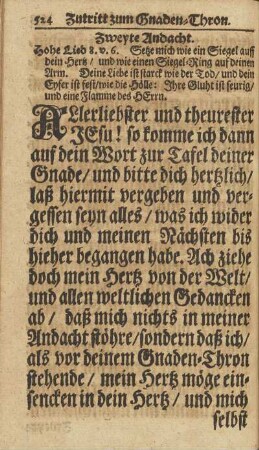 524 Zutritt zum Gnaden-Thron.
Zweyte Andacht.
Hohe Lied 8. v. 6. Setze mich wie ein Siegel auf
dein Hertz / und wie einen Siegel-Ring auf deinen
Arm. Deine Liebe ist starck wie der Tod / und dein
Eyfer ist fest / wie die Hölle: Ihre Gluht ist feurig /
und eine Flamme des HErrn.
ALlerliebster und theurester
JEsu! so komme ich dann
auf dein Wort zur Tafel deiner
Gnade / und bitte dich hertzlich /
laß hiermit vergeben und ver-
gessen seyn alles / was ich wider
dich und meinen Nächsten bis
hieher begangen habe. Ach ziehe
doch mein Hertz von der Welt /
und allen weltlichen Gedancken
ab / daß mich nichts in meiner
Andacht stöhre / sondern daß ich /
als vor deinem Gnaden-Thron
stehende / mein Hertz möge ein-
sencken in dein Hertz / und mich
selbst